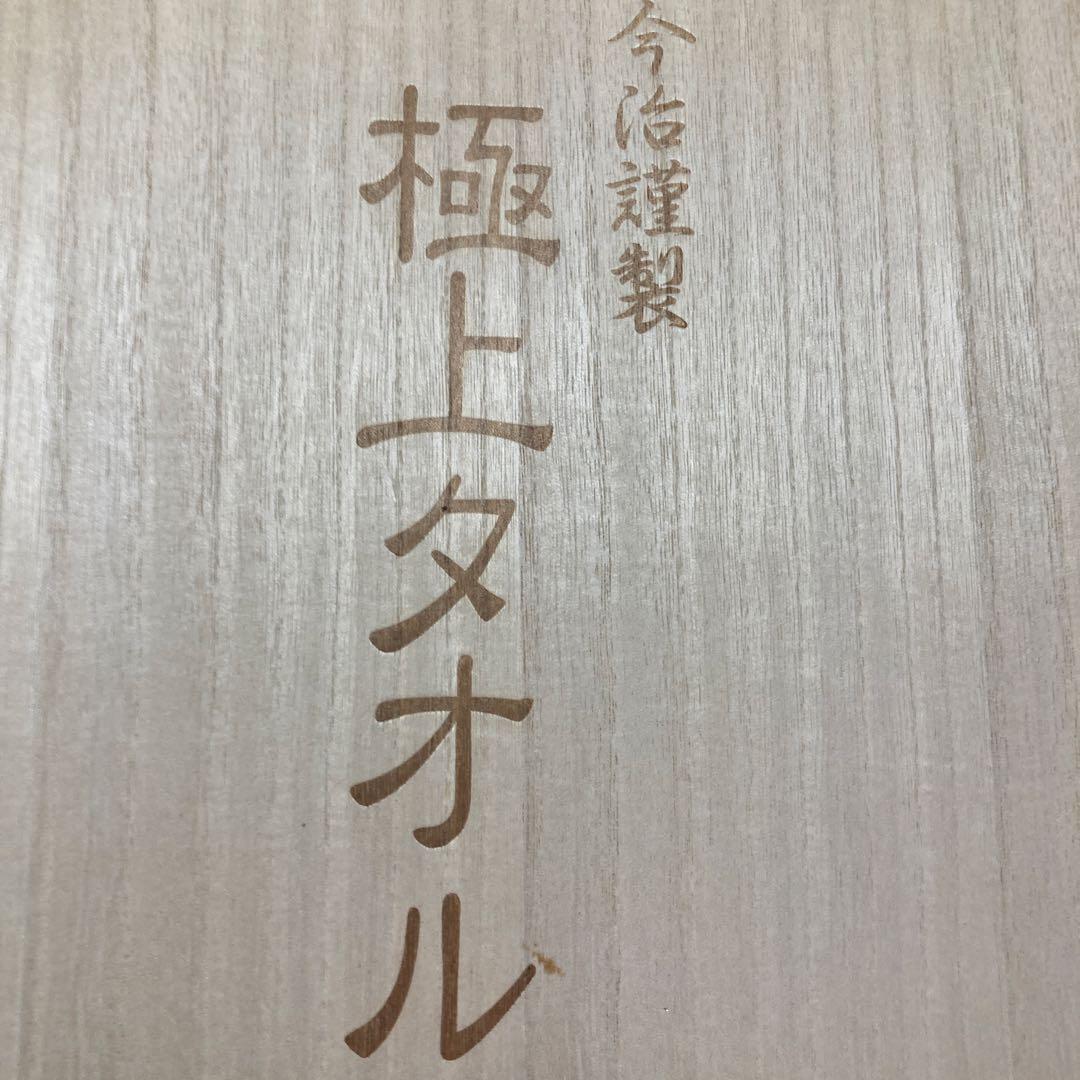 今治謹製
極上タオル